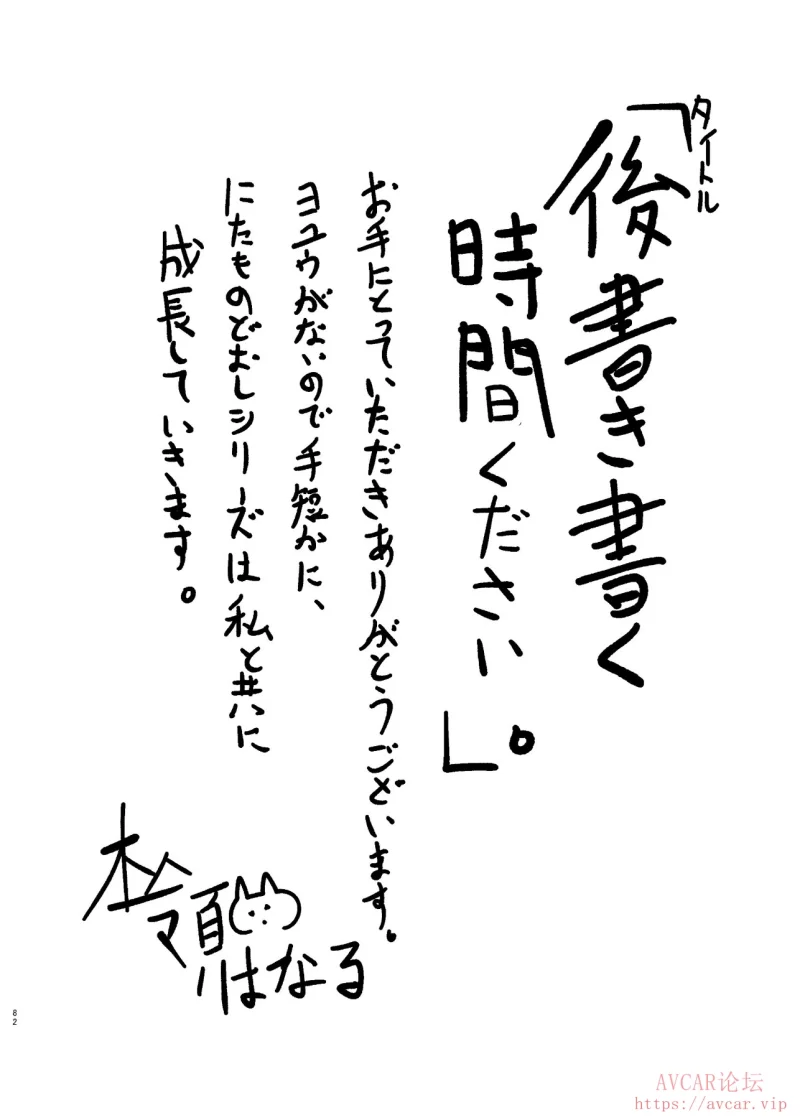 タイトル
「後書き書く
時間ください」。
お手にとっていただきありがとうございます。
ヨユウがないので手短かに、
にたものどおしシリーズは私と共に
成長していきます。
はなる
82
AVCAR论坛
https://avcar.vip